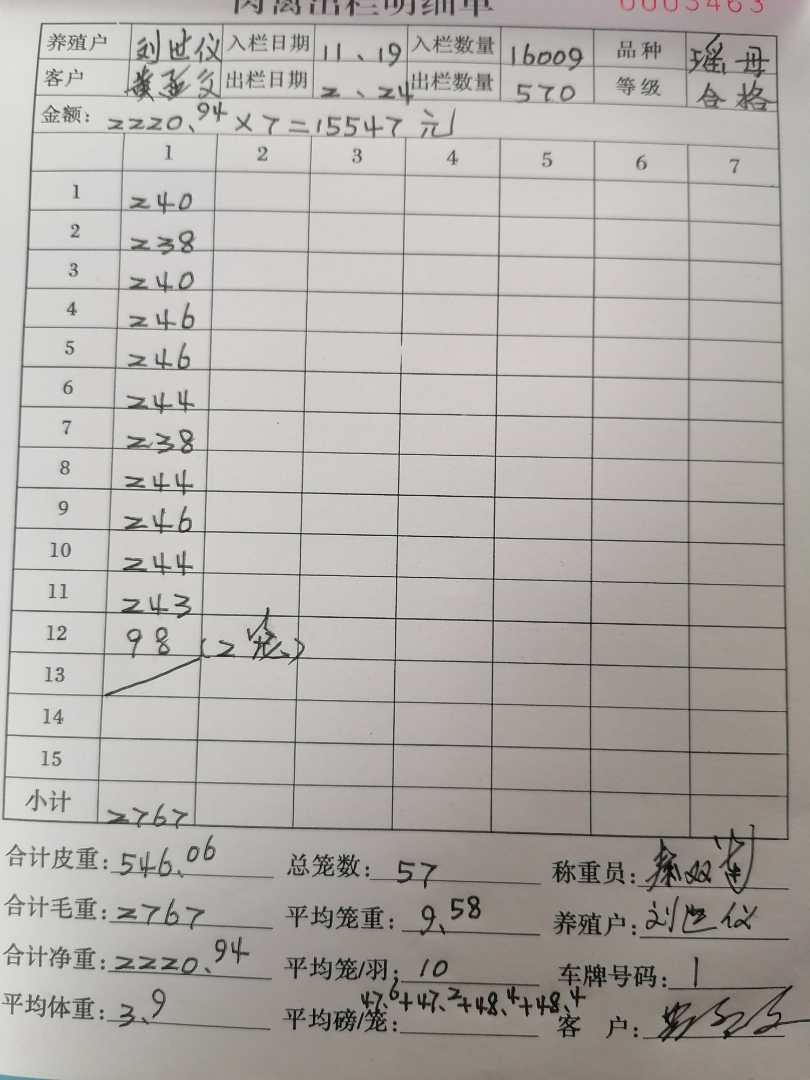 肉禽出栏明细单 0003463
养殖户 刘世仪 入栏日期 11、19 入栏数量 16009 品种 瑶母
客户 出栏日期 2、24 出栏数量 570 等级 合格
金额: 2220.94×7=15547元
1 2 3 4 5 6 7
1 240
2 238
3 240
4 246
5 246
6 244
7 238
8 244
9 246
10 244
11 243
12 98(2笼)
13
14
15
小计 2767
合计皮重: 546.06 总笼数: 57 称重员:
合计毛重: 2767 平均笼重: 9.58 养殖户: 刘世仪
合计净重: 2220.94 平均笼/羽: 10 车牌号码: 1
平均体重: 3.9 平均磅/笼: 47.6+47.2+48.4+48.4 客 户: